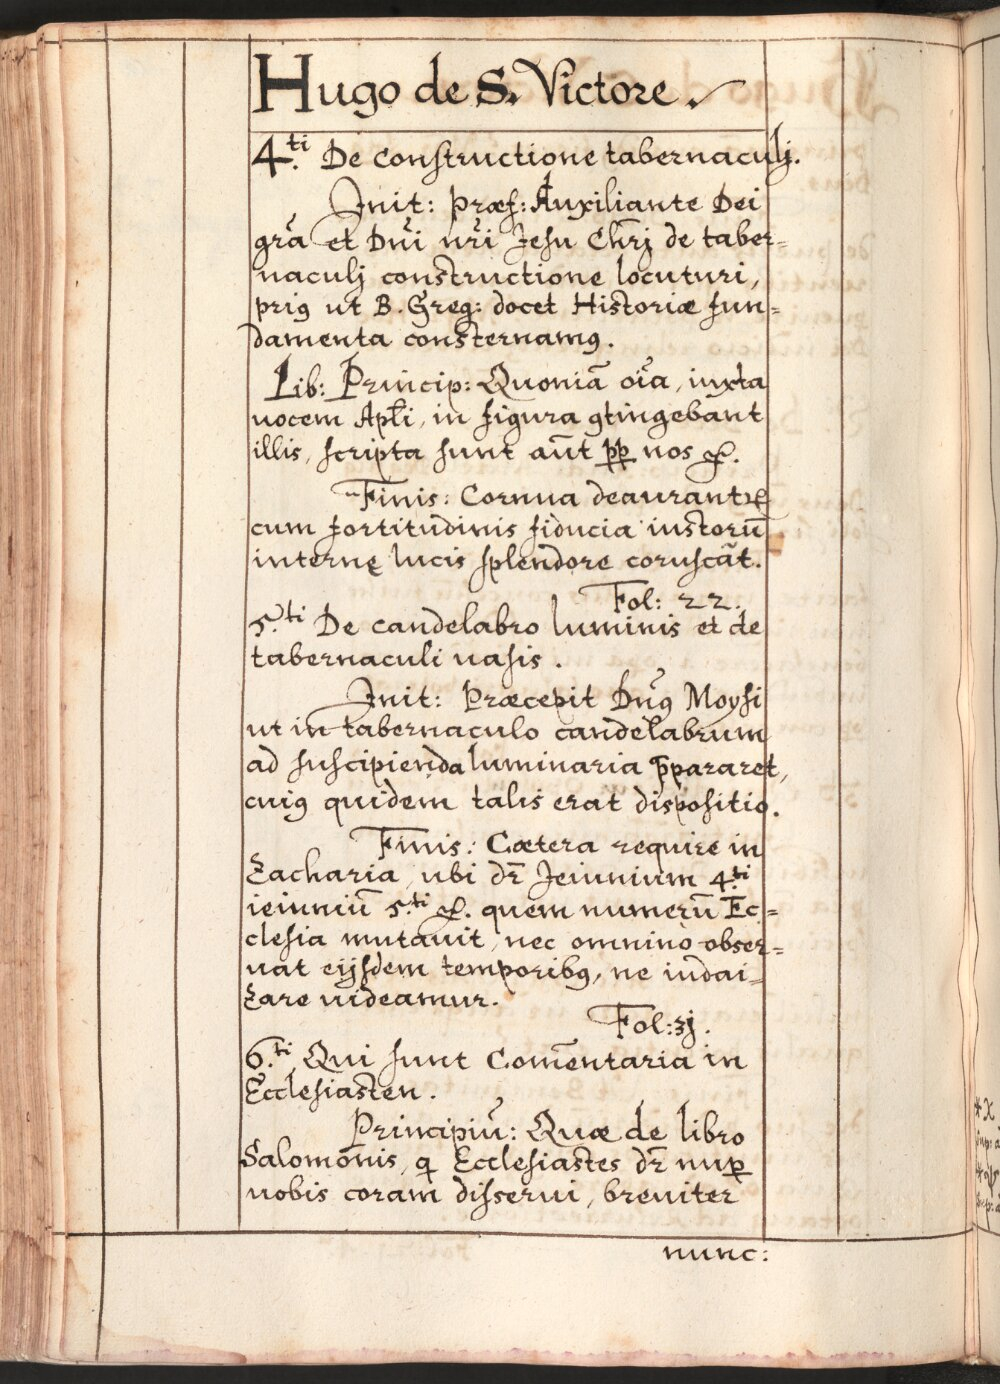 Hugo de S. Victore.
4.ti De constructione tabernaculj.
Init: præf: Auxiliante Dei
gr̃a et Dñi nr̃i Jesu Chr̃j de taber=
naculj constructione locuturi,
prig ut B. Greg: docet Historiæ fun=
damenta consternamꝰ.
Lib: Princip: Quoniã oĩa, iuxta
uocem Apłi, in figura ꝯtingebant
illis, scripta sunt aũt ꝓp nos &.
Finis: Cornua deaurantꝛ
cum fortitudinis fiducia iustorũ
internę lucis splendore coruscãt.
Fol: 22.
5.ti De candelabro luminis et de
tabernaculi uasis.
Init: Præcepit Dñꝰ Moysi
ut in tabernaculo candelabrum
ad suscipienda luminaria p̃pararet,
cuiꝰ quidem talis erat dispositio.
Finis: Cætera require in
Zacharia, ubi dr̃ Jeiunium 4.ti
ieiuniũ 5.ti &. quem numerũ Ec=
clesia mutauit, nec omnino obser=
uat eijsdem temporibꝰ, ne iudai=
zare uideamur.
Fol: 3j.
6.ti Qui sunt Com̃entaria in
Ecclesiasten.
Principiũ: Quæ de libro
Salomonis, q̃ Ecclesiastes dr̃ nuꝑ
uobis coram disserui, breuiter
nunc: